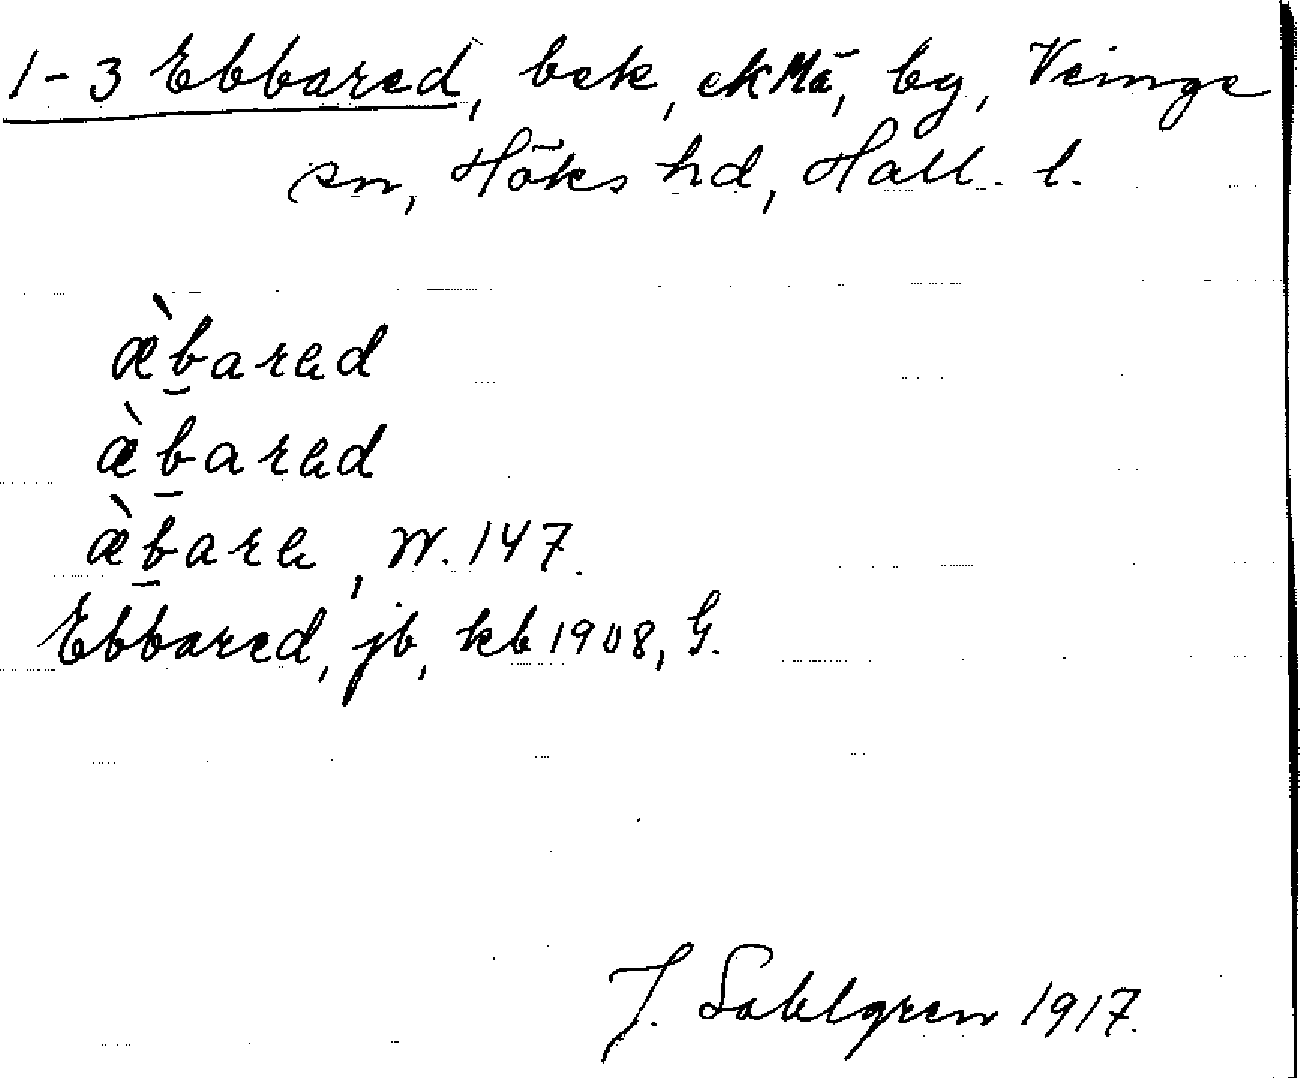 1-3 Ebbared, bek, ekMå, by, Veinge
sn, Höks hd, Hall. l.
æ̀b̲arɐd
æ̀b̲arɐd
æ̀b̲arɐ, W. 147.
Ebbared, jb, kb 1908, G.
J. Sahlgren 1917.